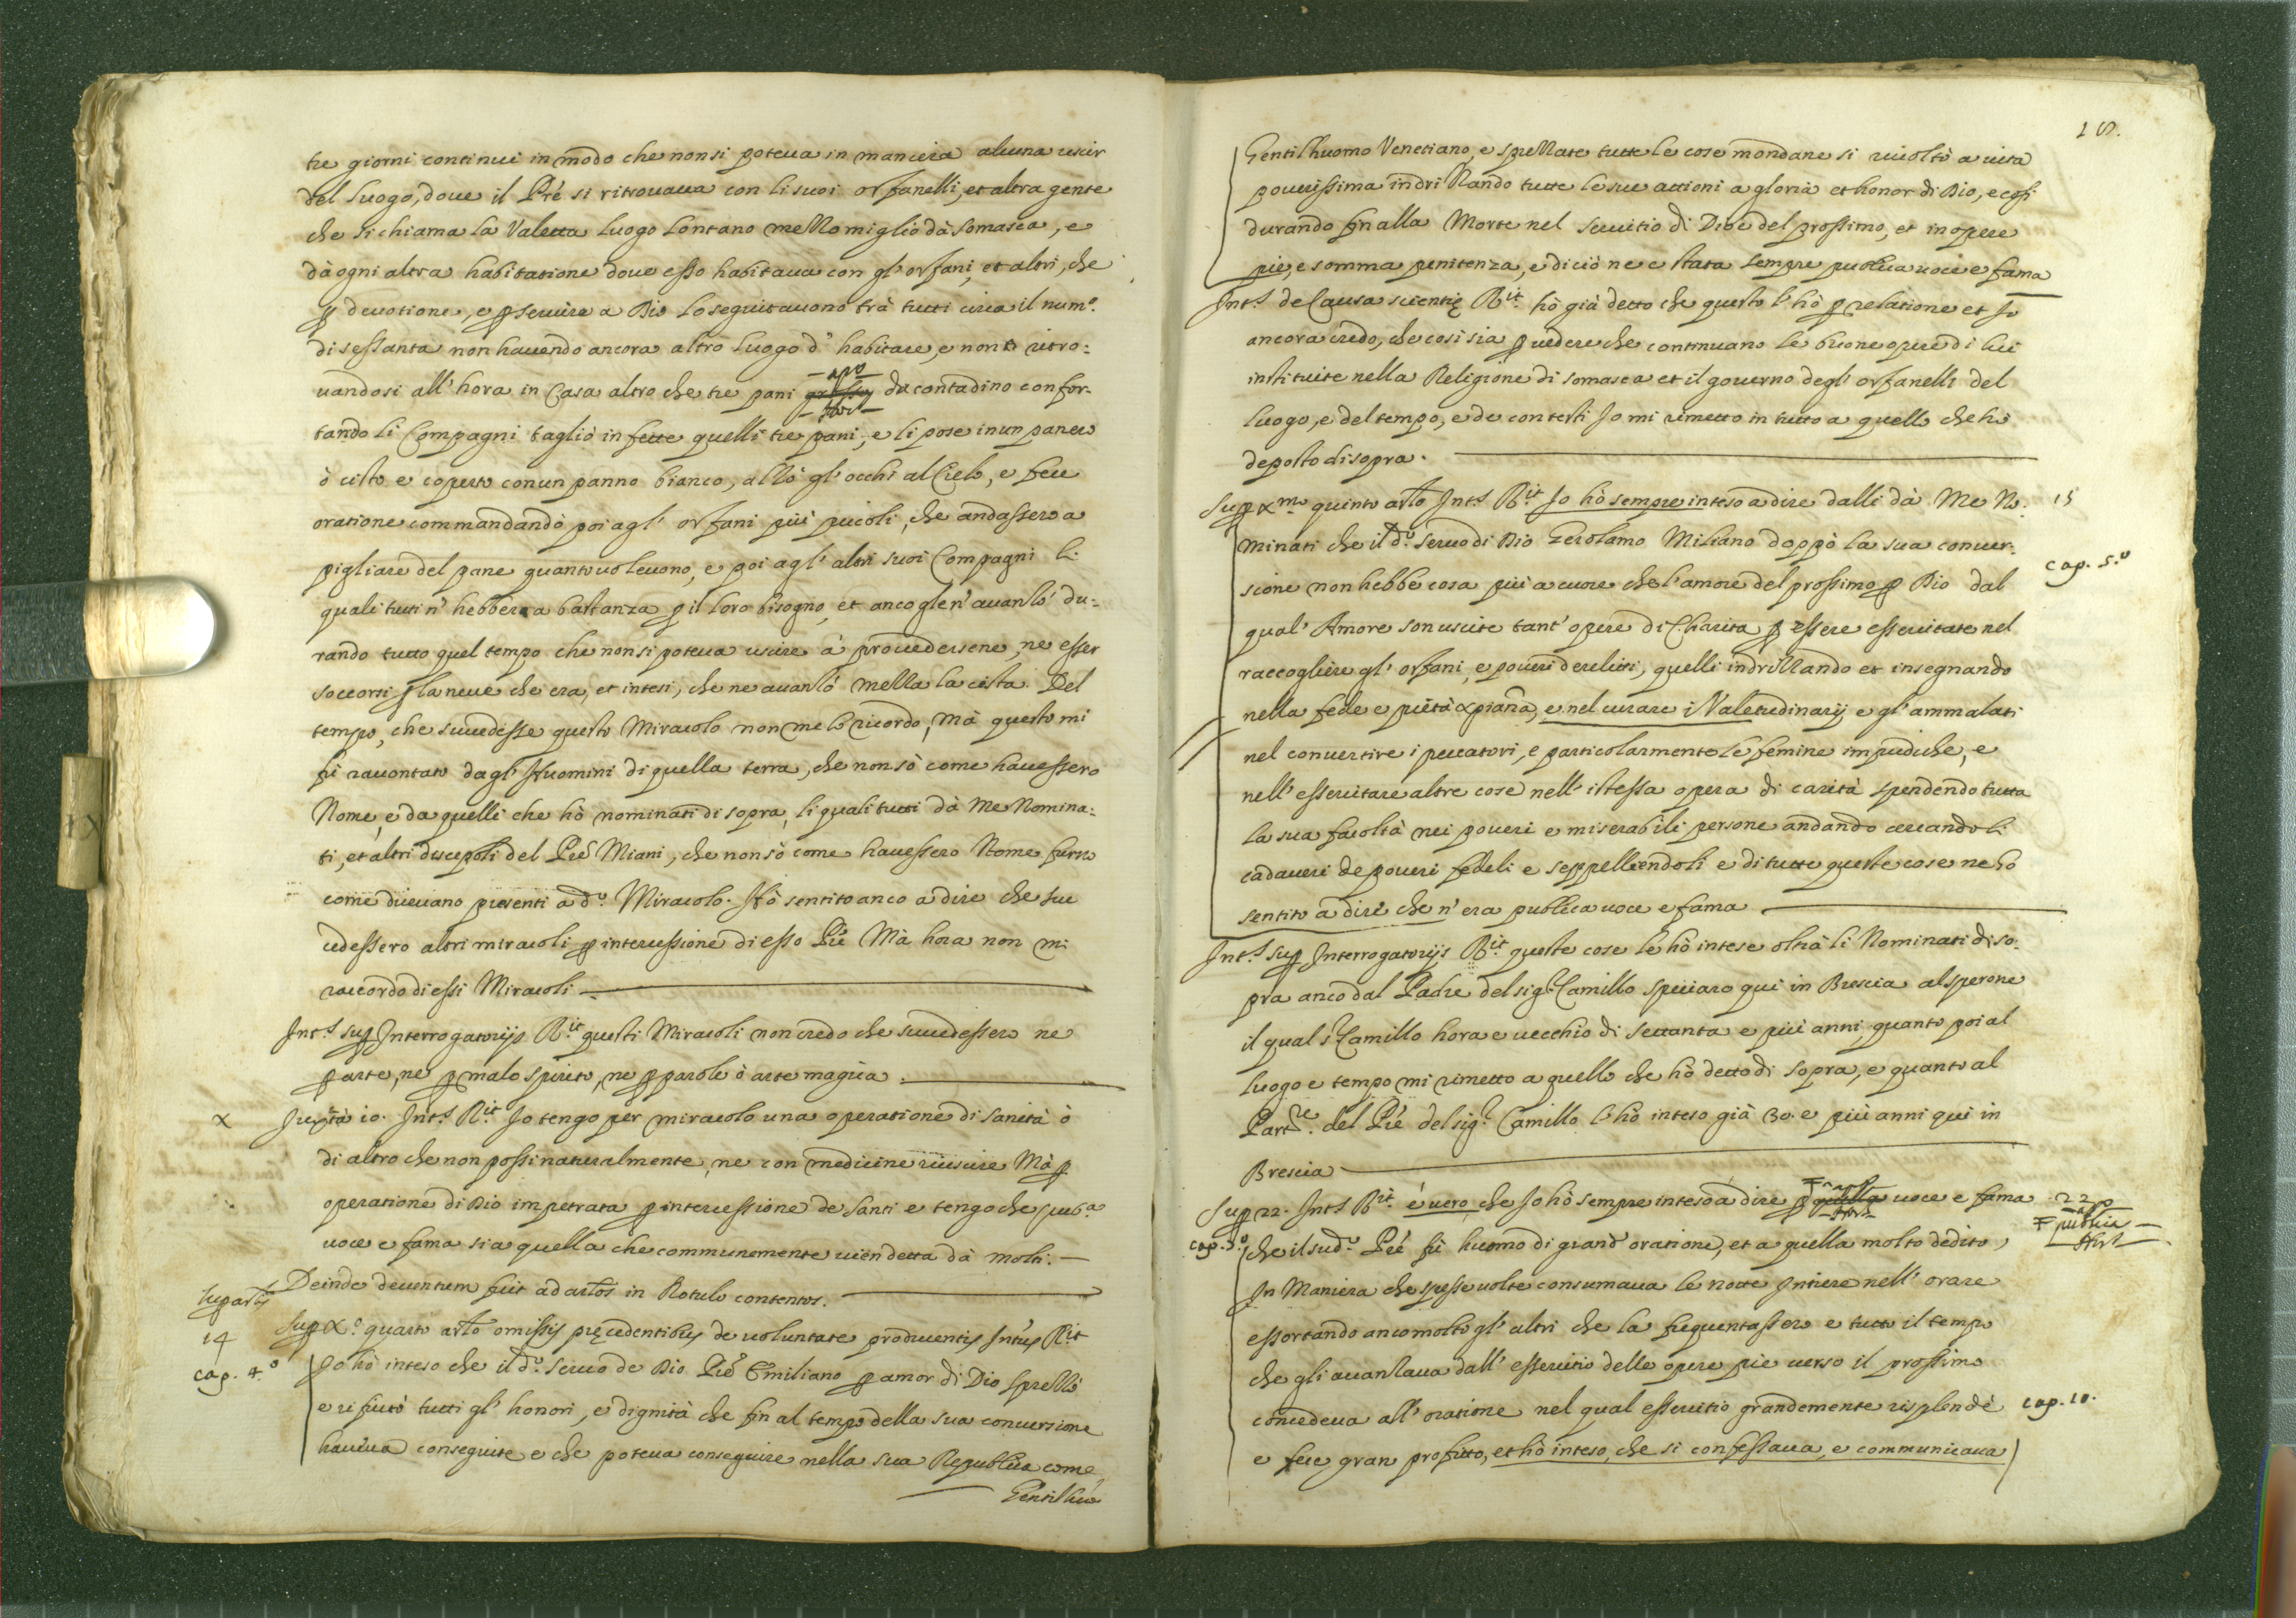 tre giorni continui in modo che non si poteua in maniera alcuna uscir
del luogo, doue il Pre si ritrouaua con li suoi orfanelli, et altra gente
che si chiama la Valetta luogo lontano mezzo miglio dà Somasca, e
dà ogni altra habitatione doue esso habitaua con gl' orfani, et altri, che
p deuotione, e p seruire a Dio lo seguitauono trà tutti circa il num.o
di sessanta non hauendo ancora altro luogo d' habitare, e non ritro:
uandosi all' hora in Casa altro che tre pani da contadino confor-
tando li Compagni tagliò in fette quelli tre pani, e li pose in un panero
ò cisto e coperto con un panno bianco, alzò gl' occhi al Cielo, e fece
oratione commandandò poi agl' orfani più piccoli, che andassero a
pigliare del pane quanto uoleuono, e poi agl' altri suoi Compagni li
quali tutti n' hebbero a bastanza p il loro bisogno, et anco gle n' auanzò du:
rando tutto quel tempo che non si poteua uscire à prouedersene, ne esser
soccorsi p la neue che era, et intesi, che ne auanzò mezza la cista. Del
tempo, che succedesse questo Miracolo non me lo ricordo, mà questo mi
fù racontato dagl' Huomini di quella terra, che non sò come hauessero
Nome, e da quelli che hò nominati di sopra, li quali tutti dà me Nomina:
ti, et altri discepoli del Pre Miani, che non sò come hauessero Nome furno
come diceuano presenti à d.o Miracolo. Hò sentito anco a dire che suc
cedessero altri miracoli p intercessione di esso Pre Mà hora non mi
raccordo di essi Miracoli
Int.s sup Interrogatorijs R.it questi Miracoli non credo che succedessero ne
p arte, ne p malo spirito, ne p parole ò arte magica.
X Iuxta 10. Int.s R.it Io tengo per miracolo una operatione di sanità ò
di altro che non possi naturalmente, ne con medicine riuscire Mà p
operatione di Dio impetrata p intercessione de Santi e tengo che pub.a
uoce e fama sia quella che communemente uien detta dà molti.
Deinde deuentum fuit ad artos in Rotulo contentos.
sup artis
14 Sup X.o quarto arto omissis precedentibus de uoluntate producentis Int.us R.it
cap. 4.o Io hò inteso che il d.o seruo de Dio Pre Emiliano p amor di Dio sprezzò
e rifiutò tutti gl' honori, e dignità che fin al tempo della sua conuersione
haueua conseguite e che poteua conseguire nella sua Republica come
Gentilhuo
Gentilhuomo Venetiano, e sprezzate tutte le cose mondane si riuoltò a uita
pouerissima indrizzando tutte le sue attioni a gloria et honor di Dio, e cosi
durando fin alla Morte nel seruitio di Dio e del prossimo, et in opere
pie, e somma penitenza, e di ciò ne e stata sempre publica uoce e fama
Int.s de Causa scientie R.it hò già detto che questo l' hò p relatione et Io
ancora credo, che cosi sia p uedere che continuano le buone opere di lui
instituite nella Religione di Somasca et il gouerno degl' orfanelli del
luogo, e del tempo, e de contesti Io mi rimetto in tutto a quello che hò
deposto di sopra.
Sup Xmo quinto arto Int.s R.it Io hò sempre inteso a dire dalli dà me No: 15
minati che il d.o seruo di Dio Gerolamo Miliano doppò la sua conuer-
cap. 5.o
sione non hebbe cosa più a cuore che l' amore del prossimo p Dio dal
qual' Amore son uscite tant' opere di Charita p essere essercitate nel
raccogliere gl' orfani, e poueri derelitti, quelli indrizzando et insegnando
nella fede e pietà xpiana, e nel curare i Valetudinarij e gl' ammalati
nel conuertire i peccatori, e particolarmente le femine impudiche, e
nell' essercitare altre cose nell' istessa opera di carità spendendo tutta
la sua facoltà nei poueri e miserabili persone andando cercando li
cadaueri de poueri fedeli e seppellendoli e di tutte queste cose ne hò
sentito a dire che n' era publica uoce e fama
Int.s sup Interrogatorijs R.it queste cose le hò intese oltrà li Nominati di so-
pra anco dal Padre del sig.r Camillo speciaro qui in Brescia al sperone
il qual S.r Camillo hora e uecchio di settanta e più anni, quanto poi al
luogo e tempo mi rimetto a quello che hò detto di sopra, e quanto al
Part.re del Pre del sig.r Camillo l' hò inteso già 30. e più anni qui in
Brescia
Sup 22. Int.s R.it é uero che Io hò sempre inteso à dire p uoce e fama 22
publica
cap. 5.o che il sud.o Pre fù huomo di grand' oratione, et a quella molto dedito,
In Maniera che spesse uolte consumaua le notte Intiere nell' orare
essortando anco molto gl' altri che la frequentassero e tutto il tempo
che gli auanzaua dall' essercitio delle opere pie uerso il prossimo
concedeua all' oratione nel qual essercitio grandemente risplendè cap. 10.
e fece gran profitto, et hò inteso, che si confessaua, e communicaua